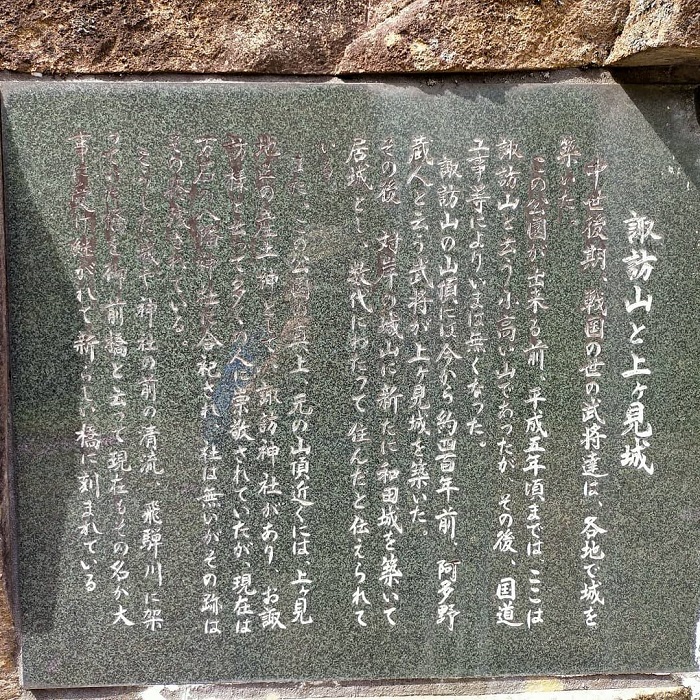 諏訪山と上ヶ見城
中世後期、戦国の世の武将達は、各地で城を
築いた
この公園が出来る前、平成五年頃までは、ここは
諏訪山と云う小高い山であったが その後、国道
工事等によりいまは無くなった。
諏訪山の山頂には今から約四百年前、阿多野
蔵人と云う武将が上ヶ見城を築いた。
その後 対岸の城山に新たに和田城を築いて
居城とし 数代にわたって住んだと伝えられて
いる
また、この公園の真上、元の山頂近くには、上ヶ見
地区の産土神として 諏訪神社があり、お諏
訪様と云って多くの人に崇敬されていたが、現在は
八幡神社に合祀され 社は無いがその跡は
その 残されている。
こうした城や神社の前の清流、飛騨川に架
御前橋と云って現在もその名が大
事に受け継がれて新らしい橋に刻まれている